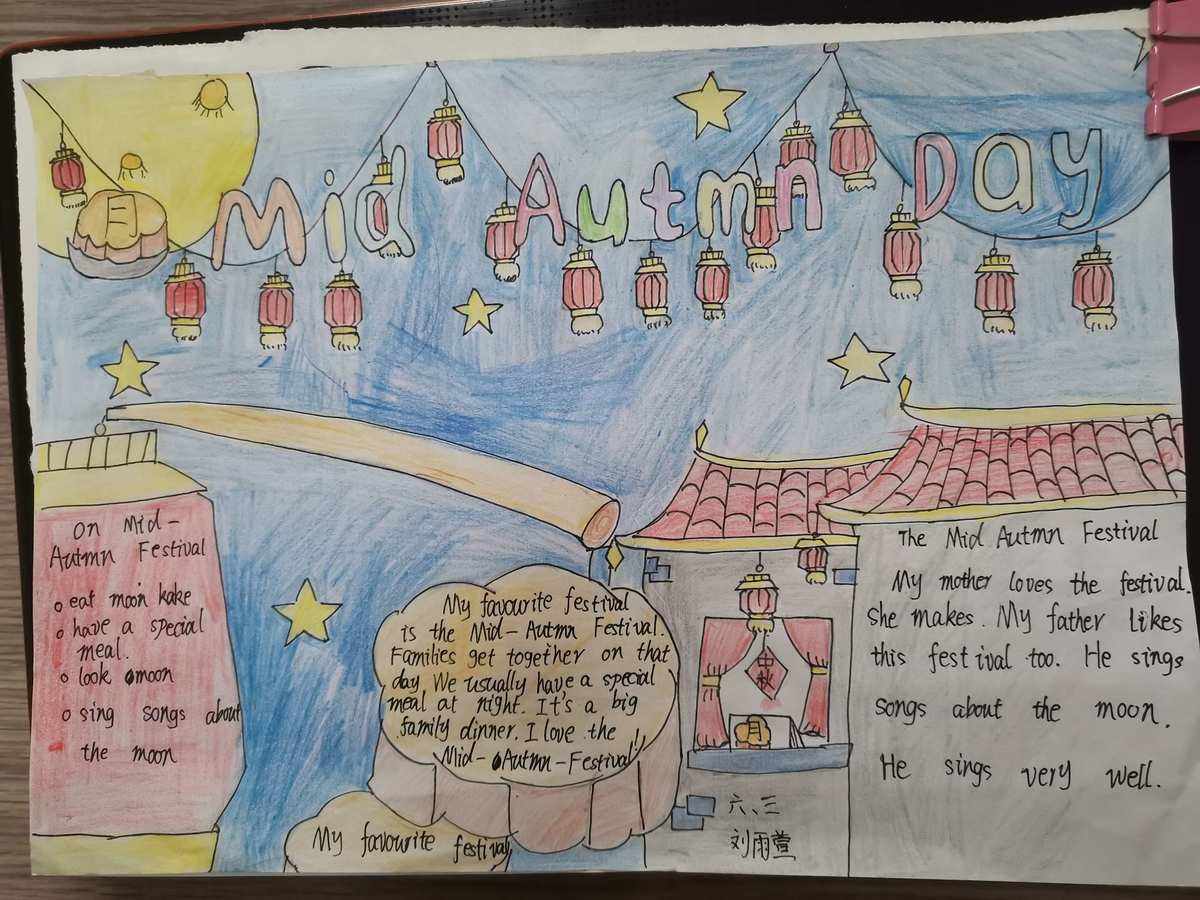 Mid Autmn Day
月
On Mid-
Autmn Festival
eat moon kake
have a special
meal.
look moon
sing songs about
the moon
My favourite festival
is the Mid-Autmn Festival.
Families get together on that
day. We usually have a special
meal at night. It's a big
family dinner. I love the
Mid-Autmn-Festival!
My favourite festival
中秋
月
六、三
刘雨萱
The Mid Autmn Festival
My mother loves the festival.
She makes. My father likes
this festival too. He sings
songs about the moon.
He sings very well.